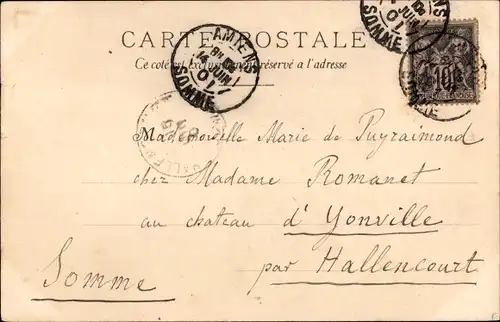 CARTE POSTALE
Ce côté est exclusivement réservé à l'adresse
AMIENS
14 JUIN
01
SOMME
10
SOMME
Mademoiselle Marie de Puyraimond
chez Madame Romanet
au chateau d'Yonville
par Hallencourt
Somme